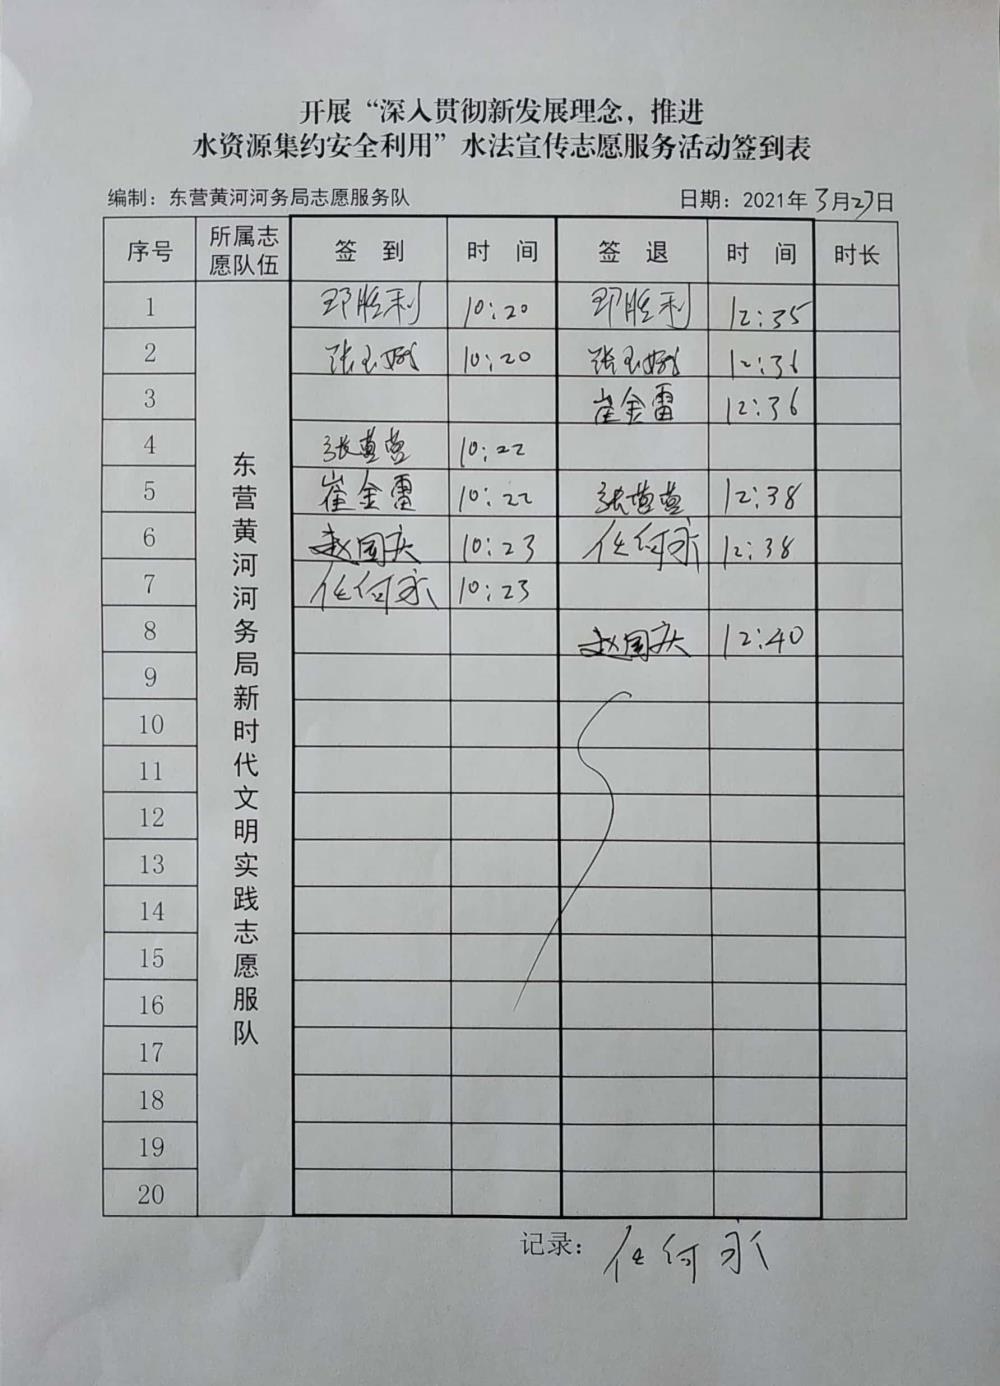 开展“深入贯彻新发展理念，推进
水资源集约安全利用”水法宣传志愿服务活动签到表
编制：东营黄河河务局志愿服务队 日期：2021年3月23日
序号 所属志愿队伍 签 到 时 间 签 退 时 间 时长
东营黄河河务局新时代文明实践志愿服队
1 邓胜利 10:20 邓胜利 12:35
2 张玉 10:20 张玉 12:36
3 崔金雷 12:36
4 张莹莹 10:22
5 崔金雷 10:22 张莹莹 12:38
6 赵国庆 10:23 任何永 12:38
7 任何永 10:23
8 赵国庆 12:40
9
10
11
12
13
14
15
16
17
18
19
20
记录：任何永